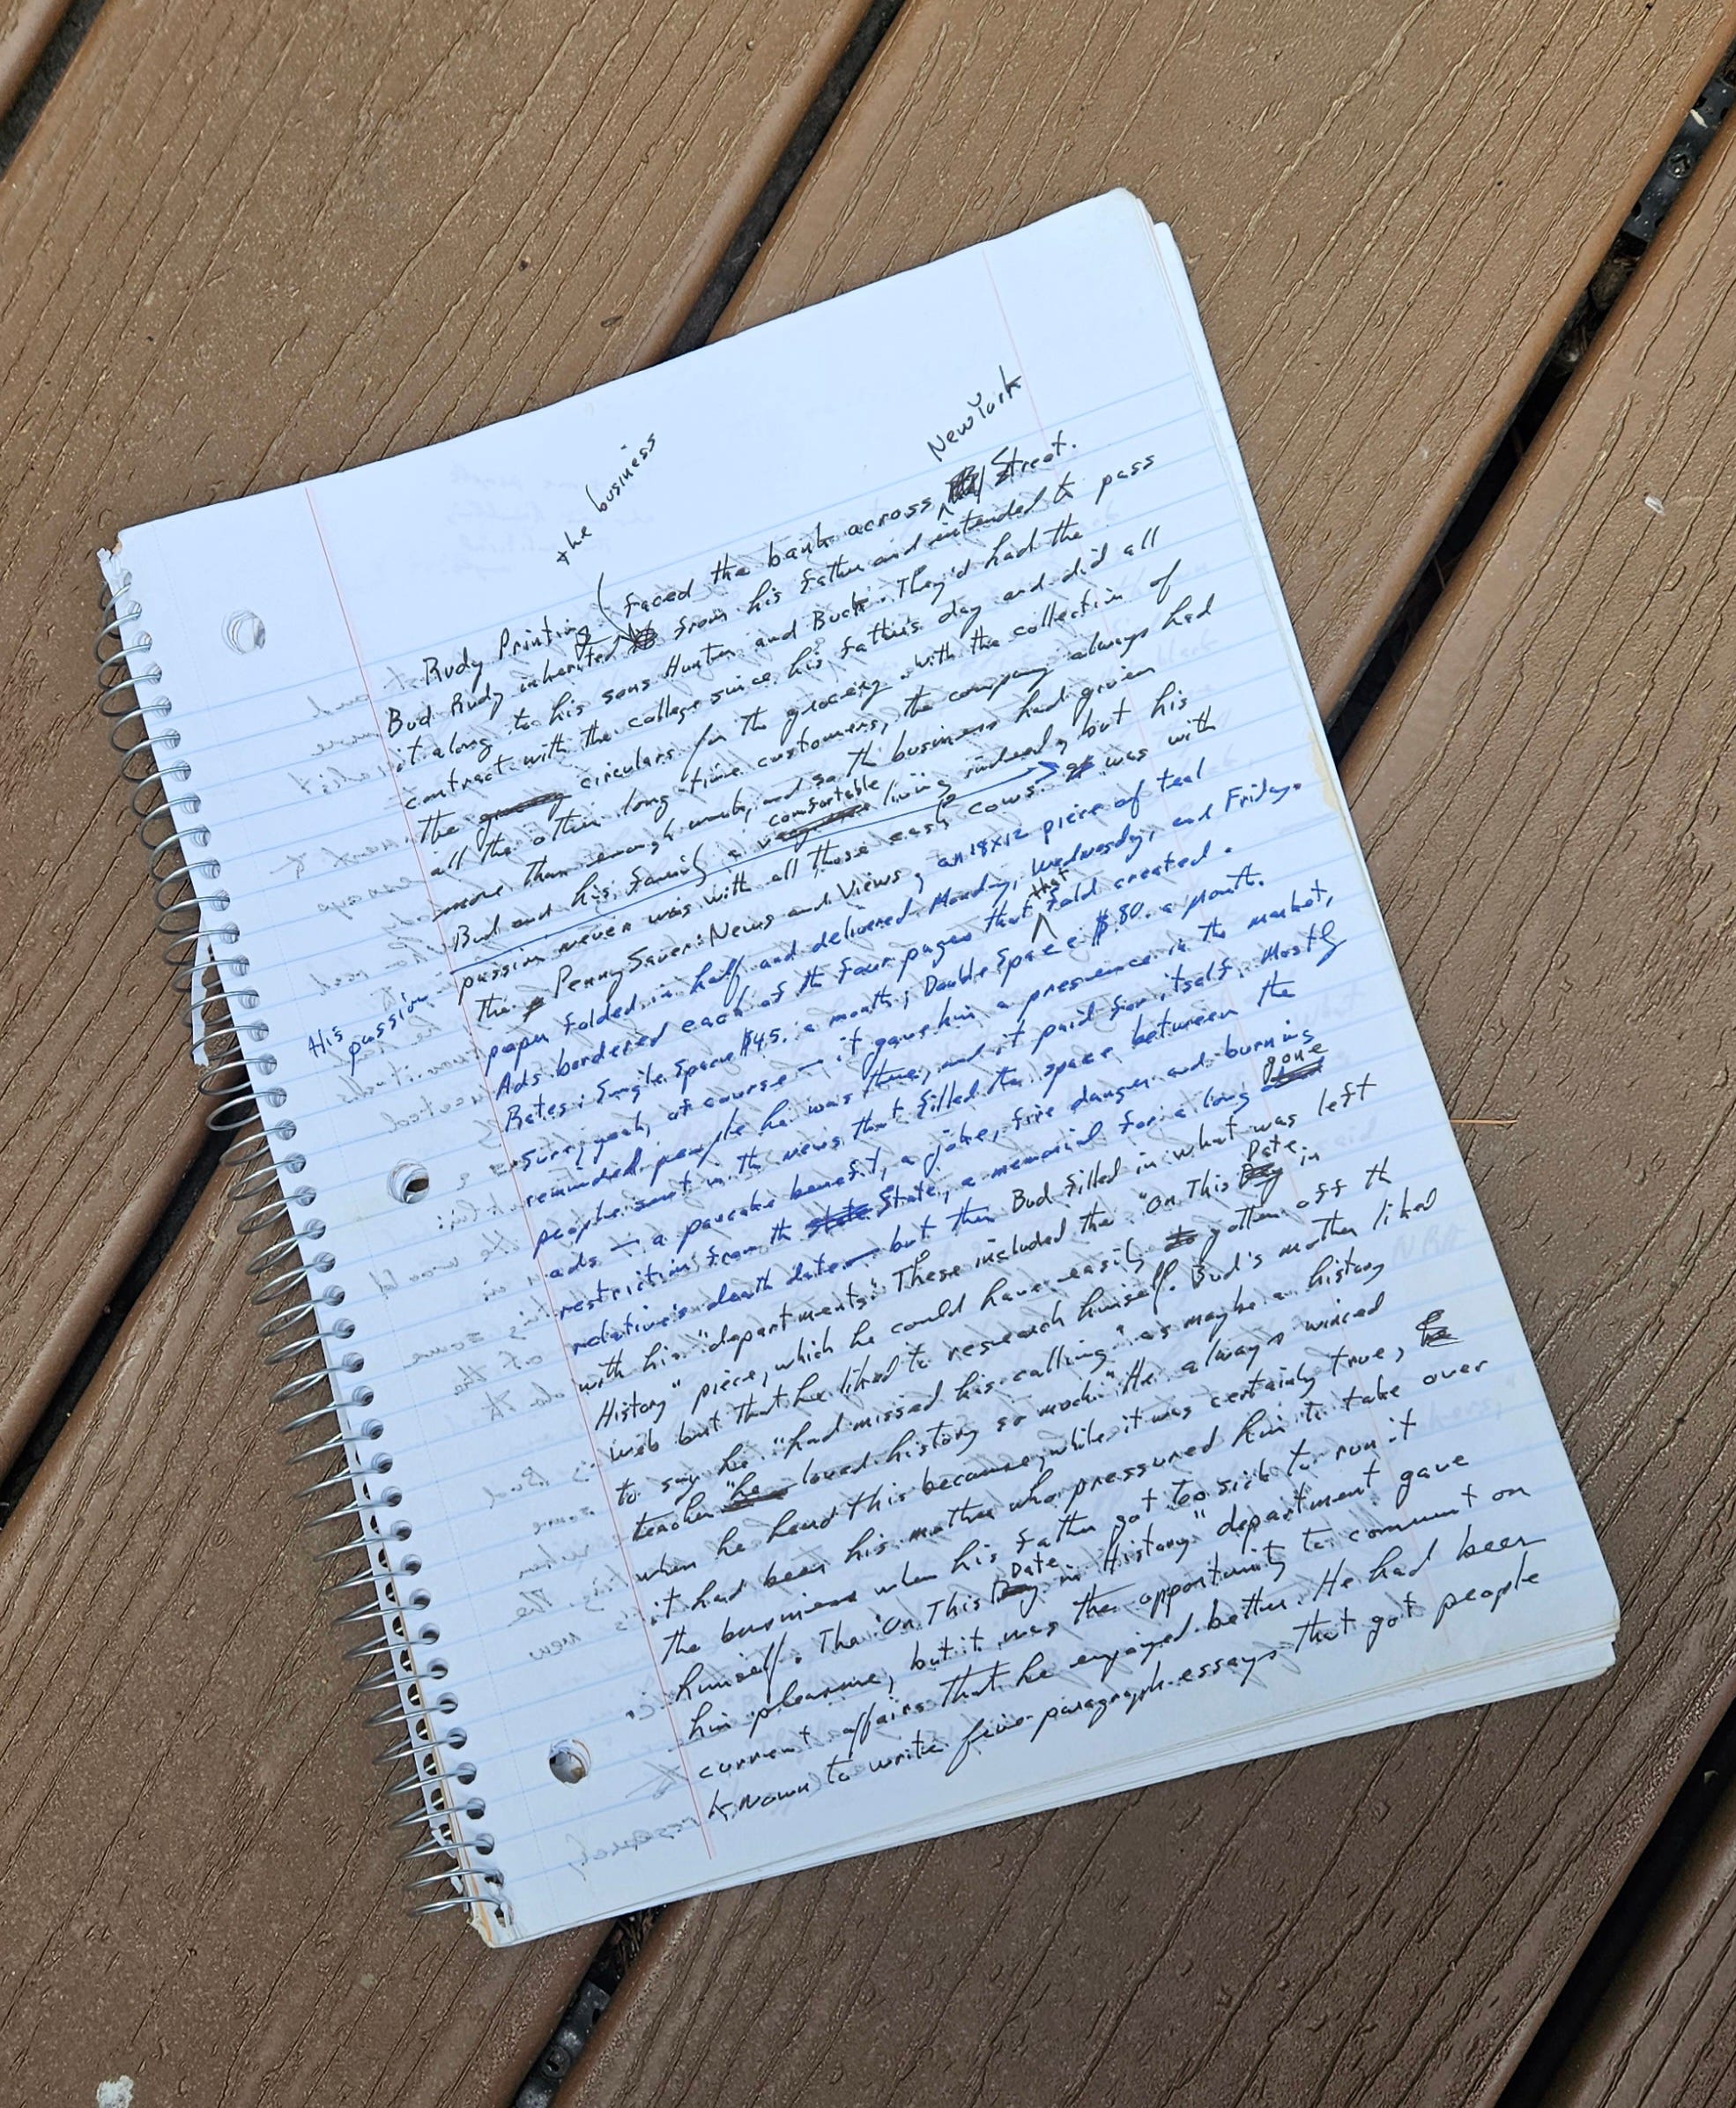 the business
New York
Rudy Printing faced the bank across Street.
Bud Rudy inherited from his father and intended to pass
it along to his sons Hunter and Buck. They'd had the
contract with the college since his father's day and did all
the circulars for the grocery. With the collection of
all the other long-time customers, the company always had
more than enough work, and so the business had given
comfortable
Bud and his family a living indeed, but his
passion never was with all those cash cows. was with
His passion
the PennySaver: News and Views, an 18x12 piece of teal
paper folded in half and delivered Monday, Wednesday, and Friday.
that
Ads bordered each of the four pages that fold created.
Rates: Single Space $45. a month; Double Space $80. a month.
Sure, yeah, of course — it gave him a presence in the market,
reminded people he was there, and it paid for itself. Mostly
people sent in the news that filled the space between the
ads — a pancake benefit, a joke, fire danger and burning
gone
restrictions from the State, a memorial for a long
relative's death date — but then Bud filled in what was left
Date
with his "departments." These included the "On This in
History" piece, which he could have easily gotten off the
web but that he liked to research himself. Bud's mother liked
to say he "had missed his calling" as maybe a history
teacher "he loved history so much." He always winced
when he heard this because, while it was certainly true,
it had been his mother who pressured him to take over
the business when his father got too sick to run it
Date
himself. The "On This in History" department gave
him pleasure, but it was the opportunity to comment on
current affairs that he enjoyed better. He had been
known to write five-paragraph essays that got people